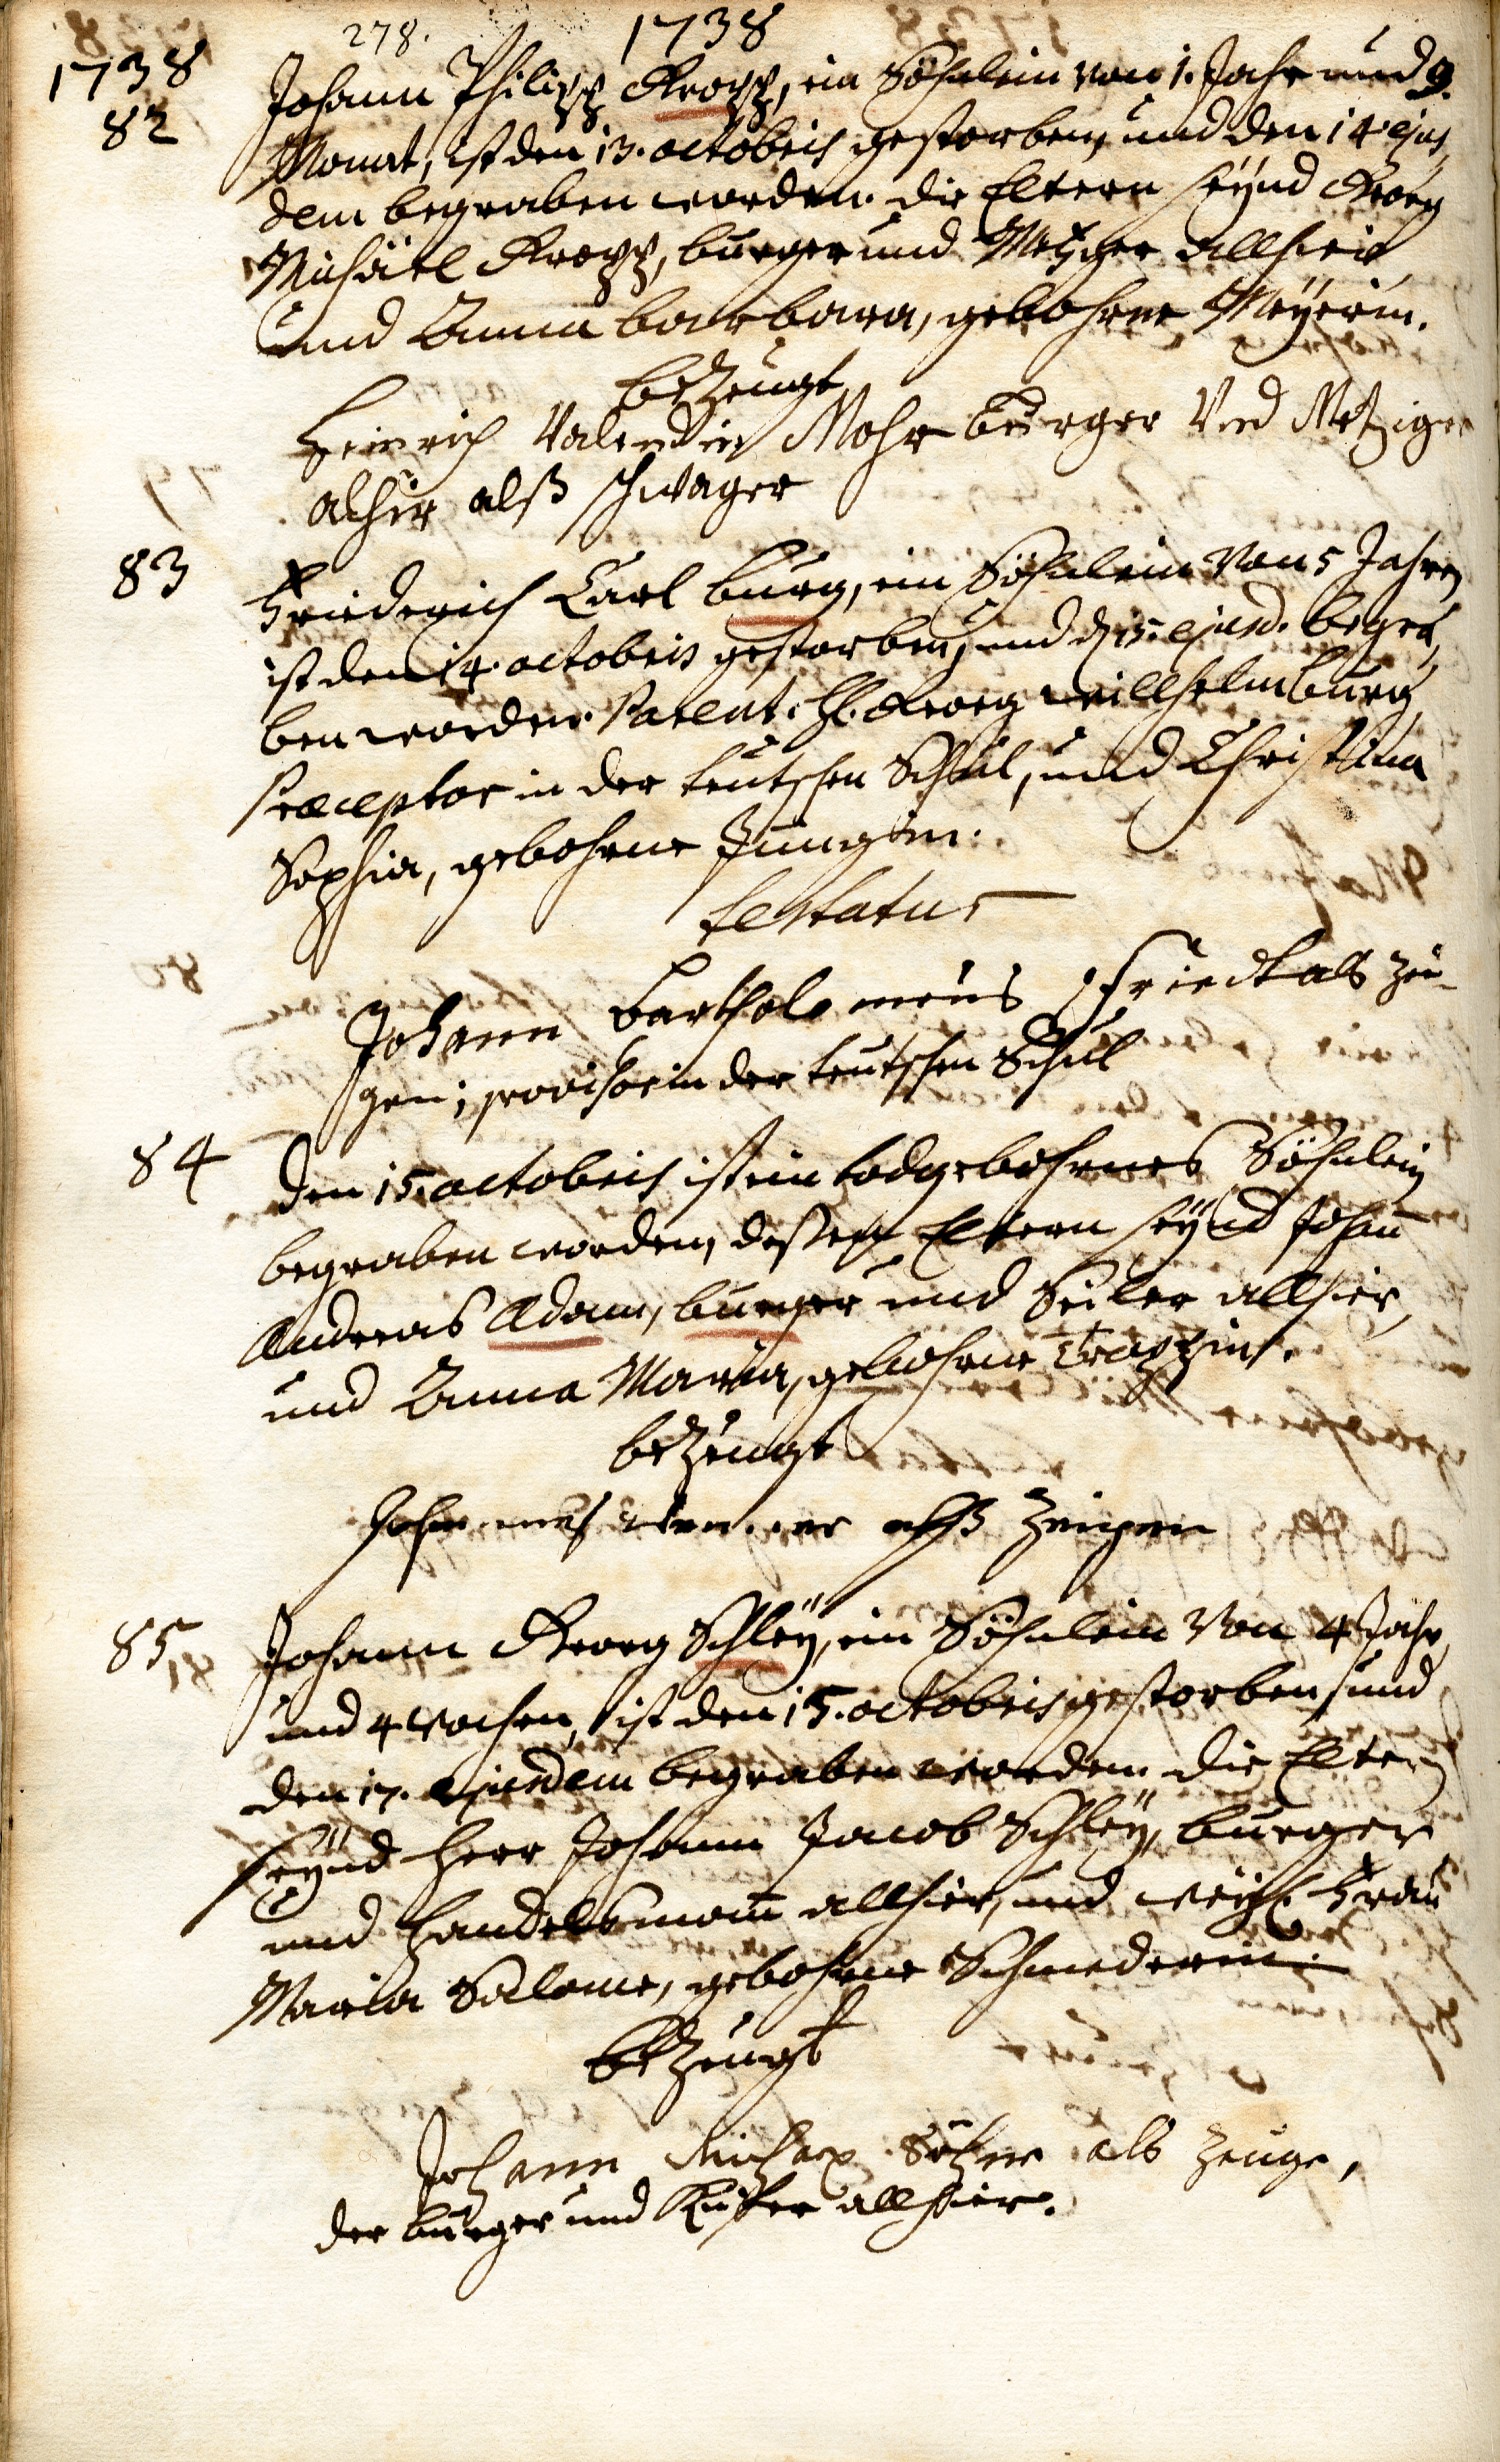 278. 1738
1738
82
Johann Philipp Kropp, ein Söhnlein von 1. Jahr und 9.
Monat, ist den 13. octobris gestorben, und den 14 ejus
dem begraben worden. die Eltern seynd Georg
Michäel Kropp, burger und Metzger allhier
und Anna barbara, gebohrne Meyerin.
bezeugt
Heinrich Valendin Mohr Bürger Vnd Metziger
alhir alß schwager
83
Friederich Carl burg, ein Söhnlein von 5 Jahren
ist den 14. octobris gestorben, und d. 15. ejusd. begra
ben worden. Parent. H. Georg willhelm burg
Præceptor in der teutschen Schul, und Christina
Sophia, gebohrne Jungin.
testatur
Johann Bartholomeus Friedt als zeu-
gen; provisor in der teutschen Schul
84
Den 15. octobris ist ein todgebohrnes Söhnlein
begraben worden, dessen Eltern seynd Johann
Andreas Adam, burger und Seiler allhier,
und Anna Maria, gebohrne Trappin.
bezeugt
alß Zeigen
85
Johann Georg Schley, ein Söhnlein von 4 Jahr
und 4 wochen, ist den 15. octobris gestorben, und
den 17. ejusdem begraben worden. die Eltern
seynd Herr Johann Jacob Schley, burger
und Handelsmann allhier, und weyl. Frau
Maria Salome, gebohrne Schmederin.
bezeugt
Johann als Zeuge,
der burger und Küfer allhier.